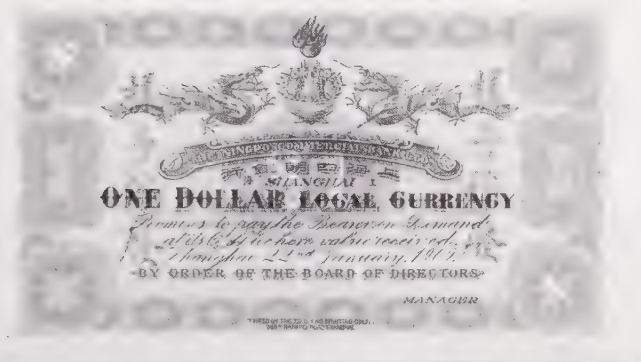 NINGPO COMMERCIAL BANK
上海四明銀行
SHANGHAI
ONE DOLLAR LOCAL CURRENCY
Promises to pay the Bearer on Demand
at its Office here value received.
Shanghai 22nd January,
BY ORDER OF THE BOARD OF DIRECTORS
MANAGER